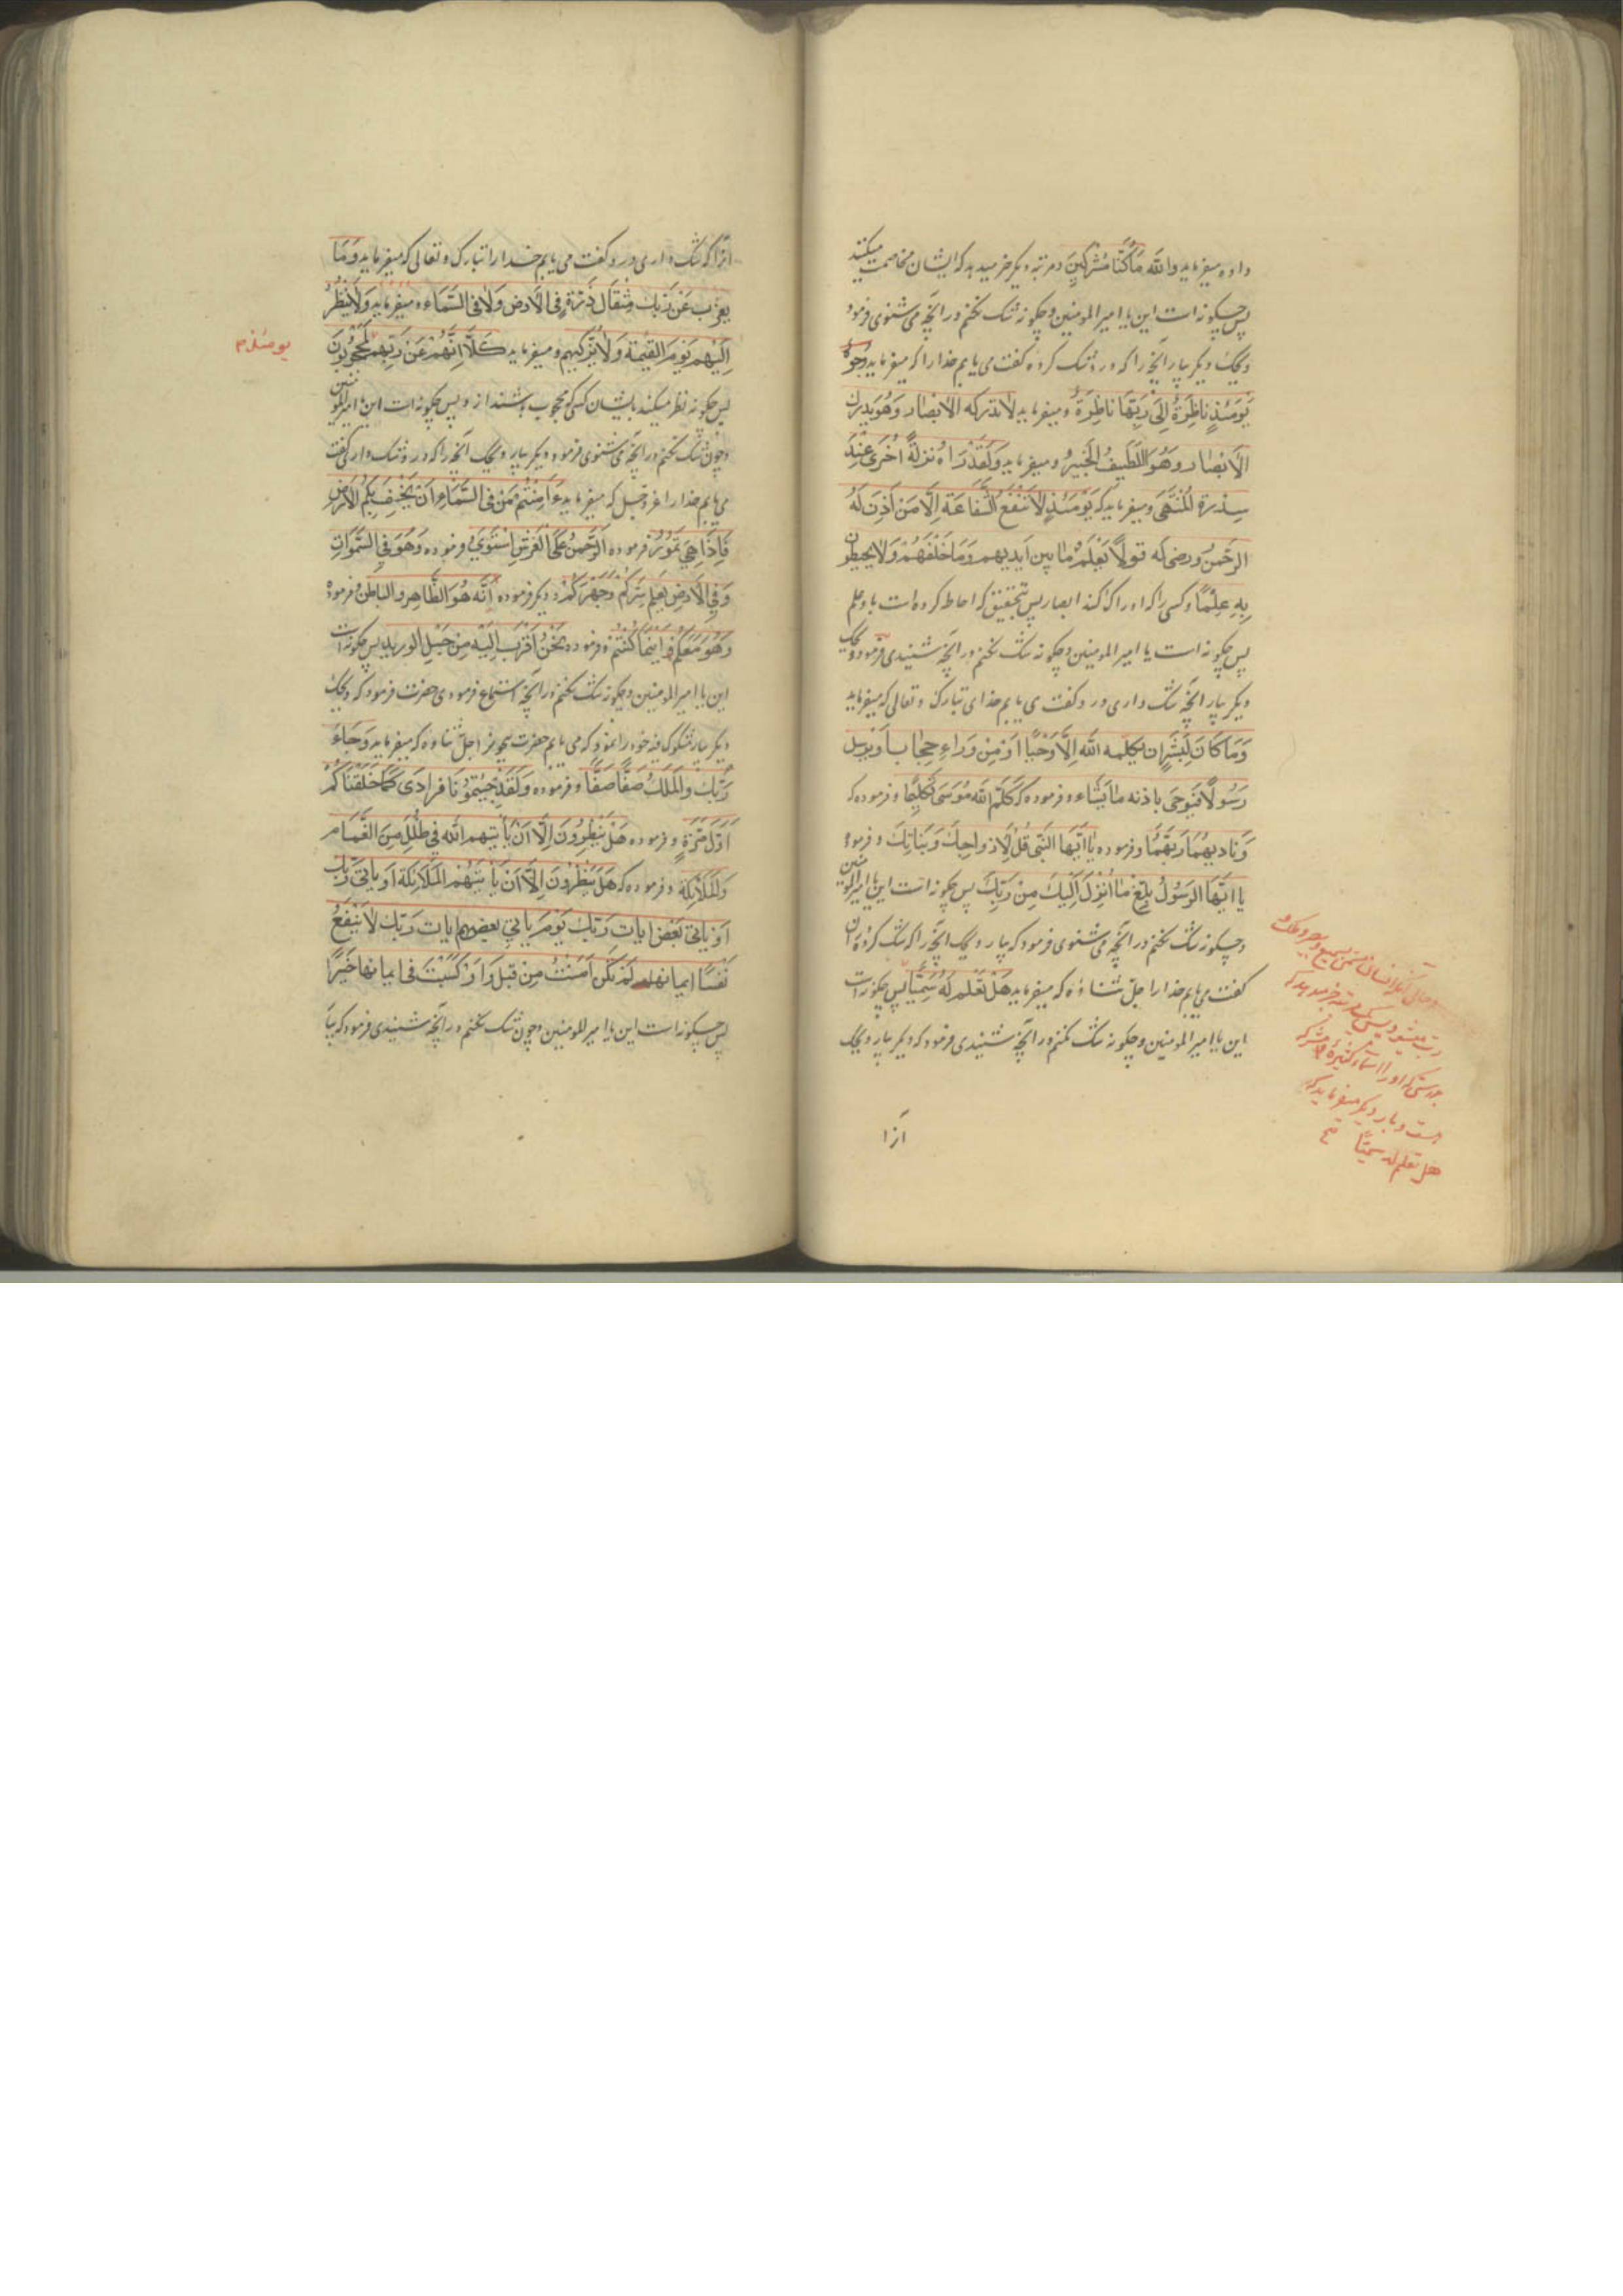 داده میفرماید والله مَا کُنَّا مُشْرِکینَ و مرتبه دیگر خبر میدهد که ایشان مخاصمت میکنند
پس چگونه است این یا امیر المومنین و چگونه شک نکنم در آنچه می شنوی فرمود
ویحک دیگر بیار آنچه را که در و شک کرده کفت می یابم خدا را که میفرماید وُجُوهٌ
یَوْمَئِذٍ ناظِرَةٌ اِلیٰ رَبِّهَا ناظِرَةٌ و میفرماید لاتدرکه الابصار وَهُوَ یدرك
الاَبْصار وهُوَ اللَّطیفُ الخَبیرُ و میفرماید وَلَقَدْ رَاهُ نَزلَةً اُخری عِنْدَ
سِدْرَةِ المُنْتَهی و میفرماید که یَوْمَئذٍ لاتَنْفَعُ الشَّفاعَة اِلَّا مَنْ اَذِنَ لَهُ
الرحمنُ ورضی له قولاً یَعْلَمُ ما بین اَیدیهم وَمَا خَلْفَهُمْ وَلایحیطون
بِهِ عِلْمًا و کسی را که ادراک کند ابصار پس بتحقیق که احاطه کرده است باو علم
پس چگونه است یا امیر المومنین و چگونه شک نکنم در آنچه شنیدی فرمود ویحک
دیگر بیار آنچه شک داری در و کفت می یابم خدای تبارک و تعالی که میفرماید
وَمَا کَانَ لِبَشَرٍ ان یکلمه الله اِلَّا وَحْیًا اَوْ مِنْ وَراءِ حِجاب اَوْ یرسل
رَسُولًا فَیُوحی باذنه ما یَشاء و فرموده که کَلَّمَ الله مُوسی تَکلیمًا و فرموده که
وَنادیهُمَا رَبُّهُمَا و فرموده یا اَیّها النَّبی قُلْ لِاَزواجِكَ وَبَنَاتِكَ و فرموده
یا اَیّهَا الرسولُ بَلِّغ ما اُنْزِلَ اِلَیْكَ مِنْ رَبِّكَ پس چگونه است این یا امیر المومنین
و چگونه شک نکنم در آنچه می شنوی فرمود که بیار ویحک آنچه را که شک کرده در آن
کفت می یابم خدا را جلّ ثناؤه که میفرماید هَلْ تَعْلَم لَهُ سَمِیًّا پس چگونه است
این یا امیر المومنین و چگونه شک نکنم در آنچه شنیدی فرمود که دیگر بیار ویحک
آنرا
هست و بار دیگر میفرماید که
هل تعلم له سمیّا
آنرا که شک داری در و کفت می یابم خدا را تبارک و تعالی که میفرماید وَمَا
یعزب عَنْ رَبّكَ مِثْقَال ذَرّةٍ فِی الاَرض وَلافی السَّمَاء و میفرماید وَلاَیَنْظُرُ
اِلَیْهِم یَوْمَ القیمة وَلایُزَکِّیهِم و میفرماید کَلَّا اِنَّهُمْ عَنْ رَبِّهِم لَمَحْجُوبُونَ
یومئذ م
پس چگونه نظر میکند بایشان کسی که محجوب باشند از و پس چگونه است این یا امیر المومنین
و چون شک نکنم در آنچه می شنوی فرمود دیگر بیار ویحک آنچه را که در و شک داری کفت
می یابم خدا را عز و جل که میفرماید ءَاَمِنْتُمْ مَنْ فِی السَّمَاءِ اَنْ یَخْسِفَ بِکُمُ الاَرْضَ
فَاِذَا هِیَ تَمُورُ و فرموده الرَّحمنُ عَلَی العَرْشِ اسْتَوی و فرموده وَهُوَ فِی السَّمٰوَاتِ
وَفِی الاَرْضِ یَعْلَم سِرَّکُمْ وَجَهْرَکُمْ و دیگر فرموده اَنَّه هُوَ الظَّاهِر والباطن و فرموده
وَهُوَ مَعَکُم اَیْنَمَا کُنْتُمْ و فرموده نَحْنُ اَقْرَب اِلَیْهِ مِنْ حَبْلِ الورید پس چگونه است
این یا امیر المومنین و چگونه شک نکنم در آنچه استماع فرمودی حضرت فرمود که ویحک
دیگر بیار مشکوک فیه خود را نمود که می یابم حضرت بیچون را جلّ ثناؤه که میفرماید وَجَاءَ
رَبُّكَ وَالمَلَكُ صَفًّا صَفًّا و فرموده وَلَقَدْ جِئْتُمُونَا فرادی کَمَا خَلَقْنَاکُمْ
اَوَّلَ مَرَّةٍ و فرموده هَلْ یَنْظُرُونَ اِلَّا اَنْ یَأتیهم الله فِی ظُلَلٍ مِنَ الغَمَامِ
وَالمَلَائِکَة و فرموده که هَلْ یَنْظُرُونَ اِلَّا اَنْ یَأتیَهُمُ المَلائِکَة اَوْ یاتی رَبُّك
اَوْ یاتی بَعْض ایات رَبِّكَ یَوْمَ یاتی بعض ایات رَبِّكَ لایَنْفَعُ
نَفْسًا ایمانها لَمْ تَکُنْ اٰمَنَتْ مِنْ قَبْل اَوْ کَسَبَتْ فی ایمانها خَیْرًا
پس چگونه است این یا امیر المومنین و چون شک نکنم در آنچه شنیدی فرمود که بیا